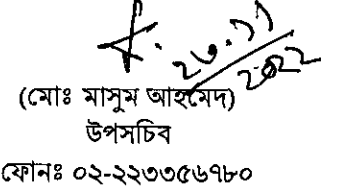 ২৩.১১
২০২২
(মোঃ মাসুম আহমেদ)
উপসচিব
ফোনঃ ০২-২২৩৩৫৬৭৮০